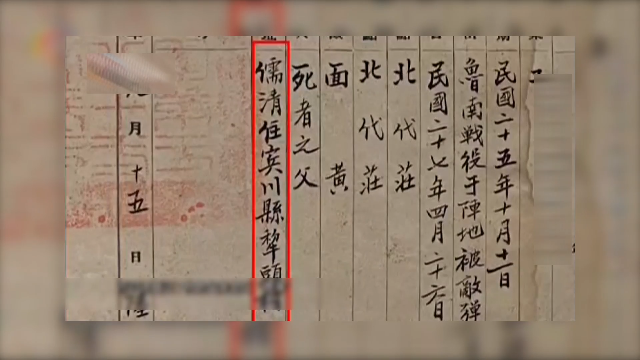 民國二十五年十月十一日
魯南戰役于陣地被敵彈
民國二十七年四月二十六日
北代莊
北代莊
面黃
死者之父
儒清住宾川縣犂頭
月十五日